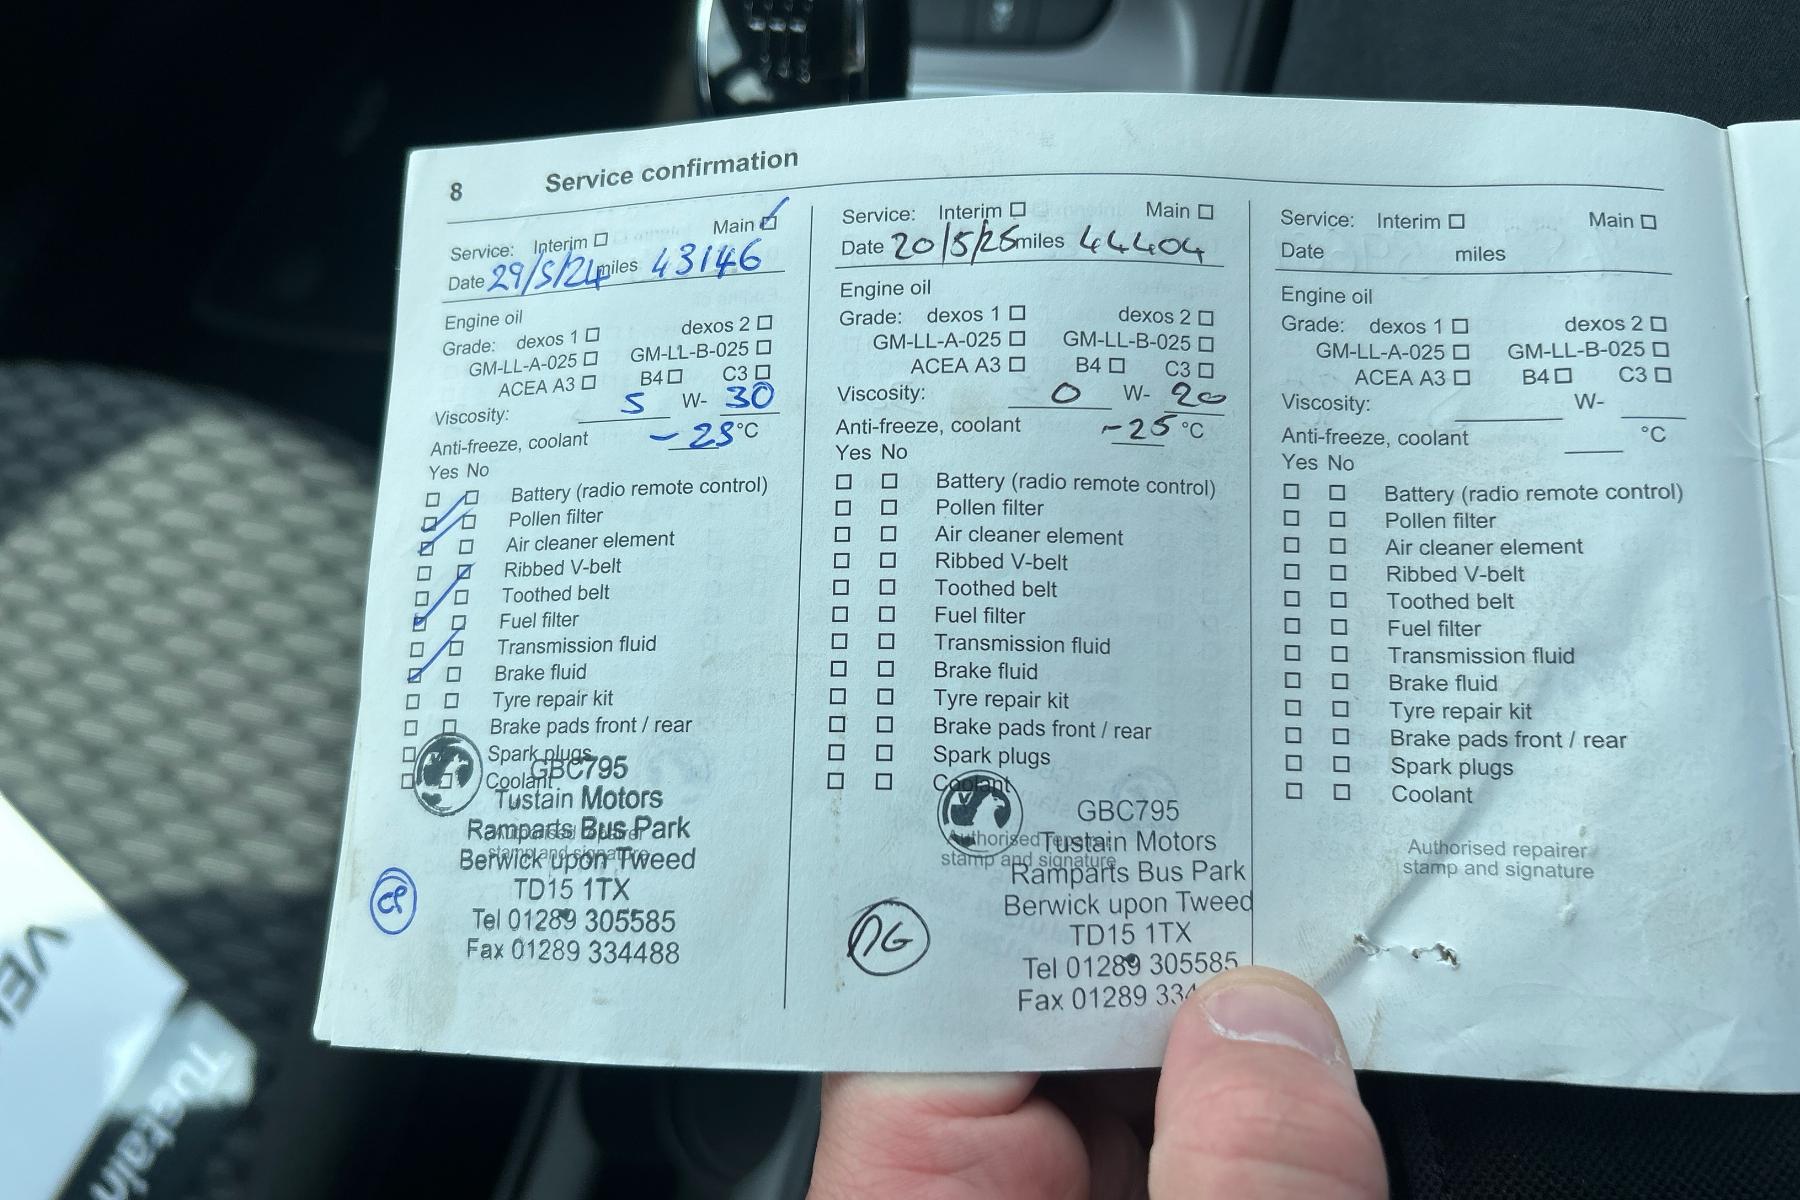 8 Service confirmation
Service: Interim Main
Date 29/5/24 miles 43146
Engine oil
Grade: dexos 1 dexos 2
GM-LL-A-025 GM-LL-B-025
ACEA A3 B4 C3
Viscosity: 5 W- 30
Anti-freeze, coolant -25 °C
Yes No
Battery (radio remote control)
Pollen filter
Air cleaner element
Ribbed V-belt
Toothed belt
Fuel filter
Transmission fluid
Brake fluid
Tyre repair kit
Brake pads front / rear
Spark plugs
Coolant
GBC795
Tustain Motors
Ramparts Bus Park
Authorised repairer
stamp and signature
Berwick upon Tweed
TD15 1TX
Tel 01289 305585
Fax 01289 334488
Service: Interim Main
Date 20/5/25 miles 44404
Engine oil
Grade: dexos 1 dexos 2
GM-LL-A-025 GM-LL-B-025
ACEA A3 B4 C3
Viscosity: 0 W- 20
Anti-freeze, coolant -25 °C
Yes No
Battery (radio remote control)
Pollen filter
Air cleaner element
Ribbed V-belt
Toothed belt
Fuel filter
Transmission fluid
Brake fluid
Tyre repair kit
Brake pads front / rear
Spark plugs
Coolant
GBC795
Authorised repairer
Tustain Motors
stamp and signature
Ramparts Bus Park
Berwick upon Tweed
TD15 1TX
Tel 01289 305585
Fax 01289 334
Service: Interim Main
Date miles
Engine oil
Grade: dexos 1 dexos 2
GM-LL-A-025 GM-LL-B-025
ACEA A3 B4 C3
Viscosity: W-
Anti-freeze, coolant °C
Yes No
Battery (radio remote control)
Pollen filter
Air cleaner element
Ribbed V-belt
Toothed belt
Fuel filter
Transmission fluid
Brake fluid
Tyre repair kit
Brake pads front / rear
Spark plugs
Coolant
Authorised repairer
stamp and signature
Tustain